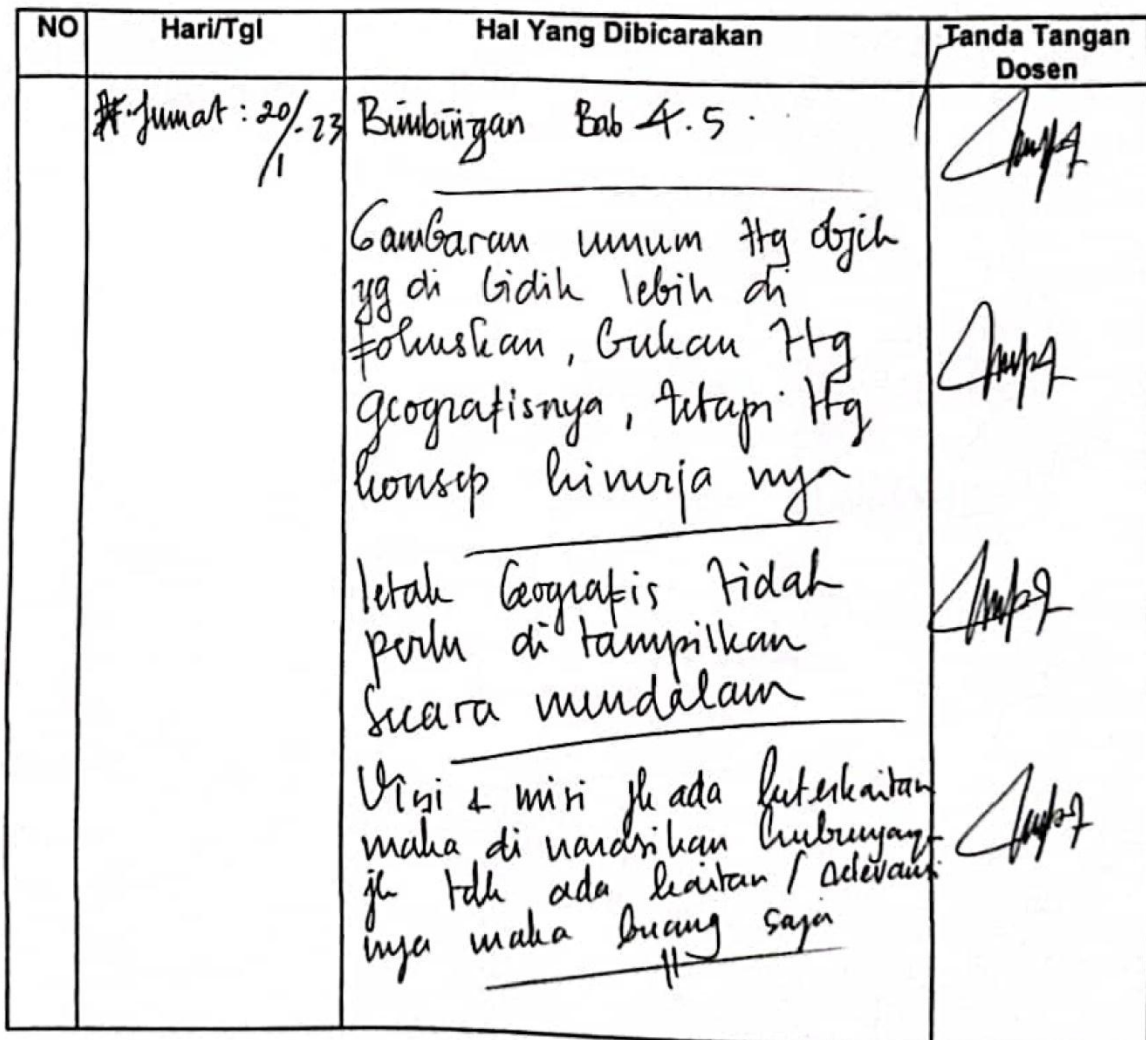 NO Hari/Tgl Hal Yang Dibicarakan Tanda Tangan
Dosen
Jumat : 20/1-23 Bimbingan Bab 4.5.
Gambaran umum ttg objek
yg di bidik lebih di
fokuskan, bukan ttg
geografisnya, tetapi ttg
konsep kinerja nya
letak Geografis tidak
perlu di tampilkan
secara mendalam
Visi & misi jk ada keterkaitan
maka di narasikan hubungan
jk tdk ada kaitan / relevansi
nya maka buang saja